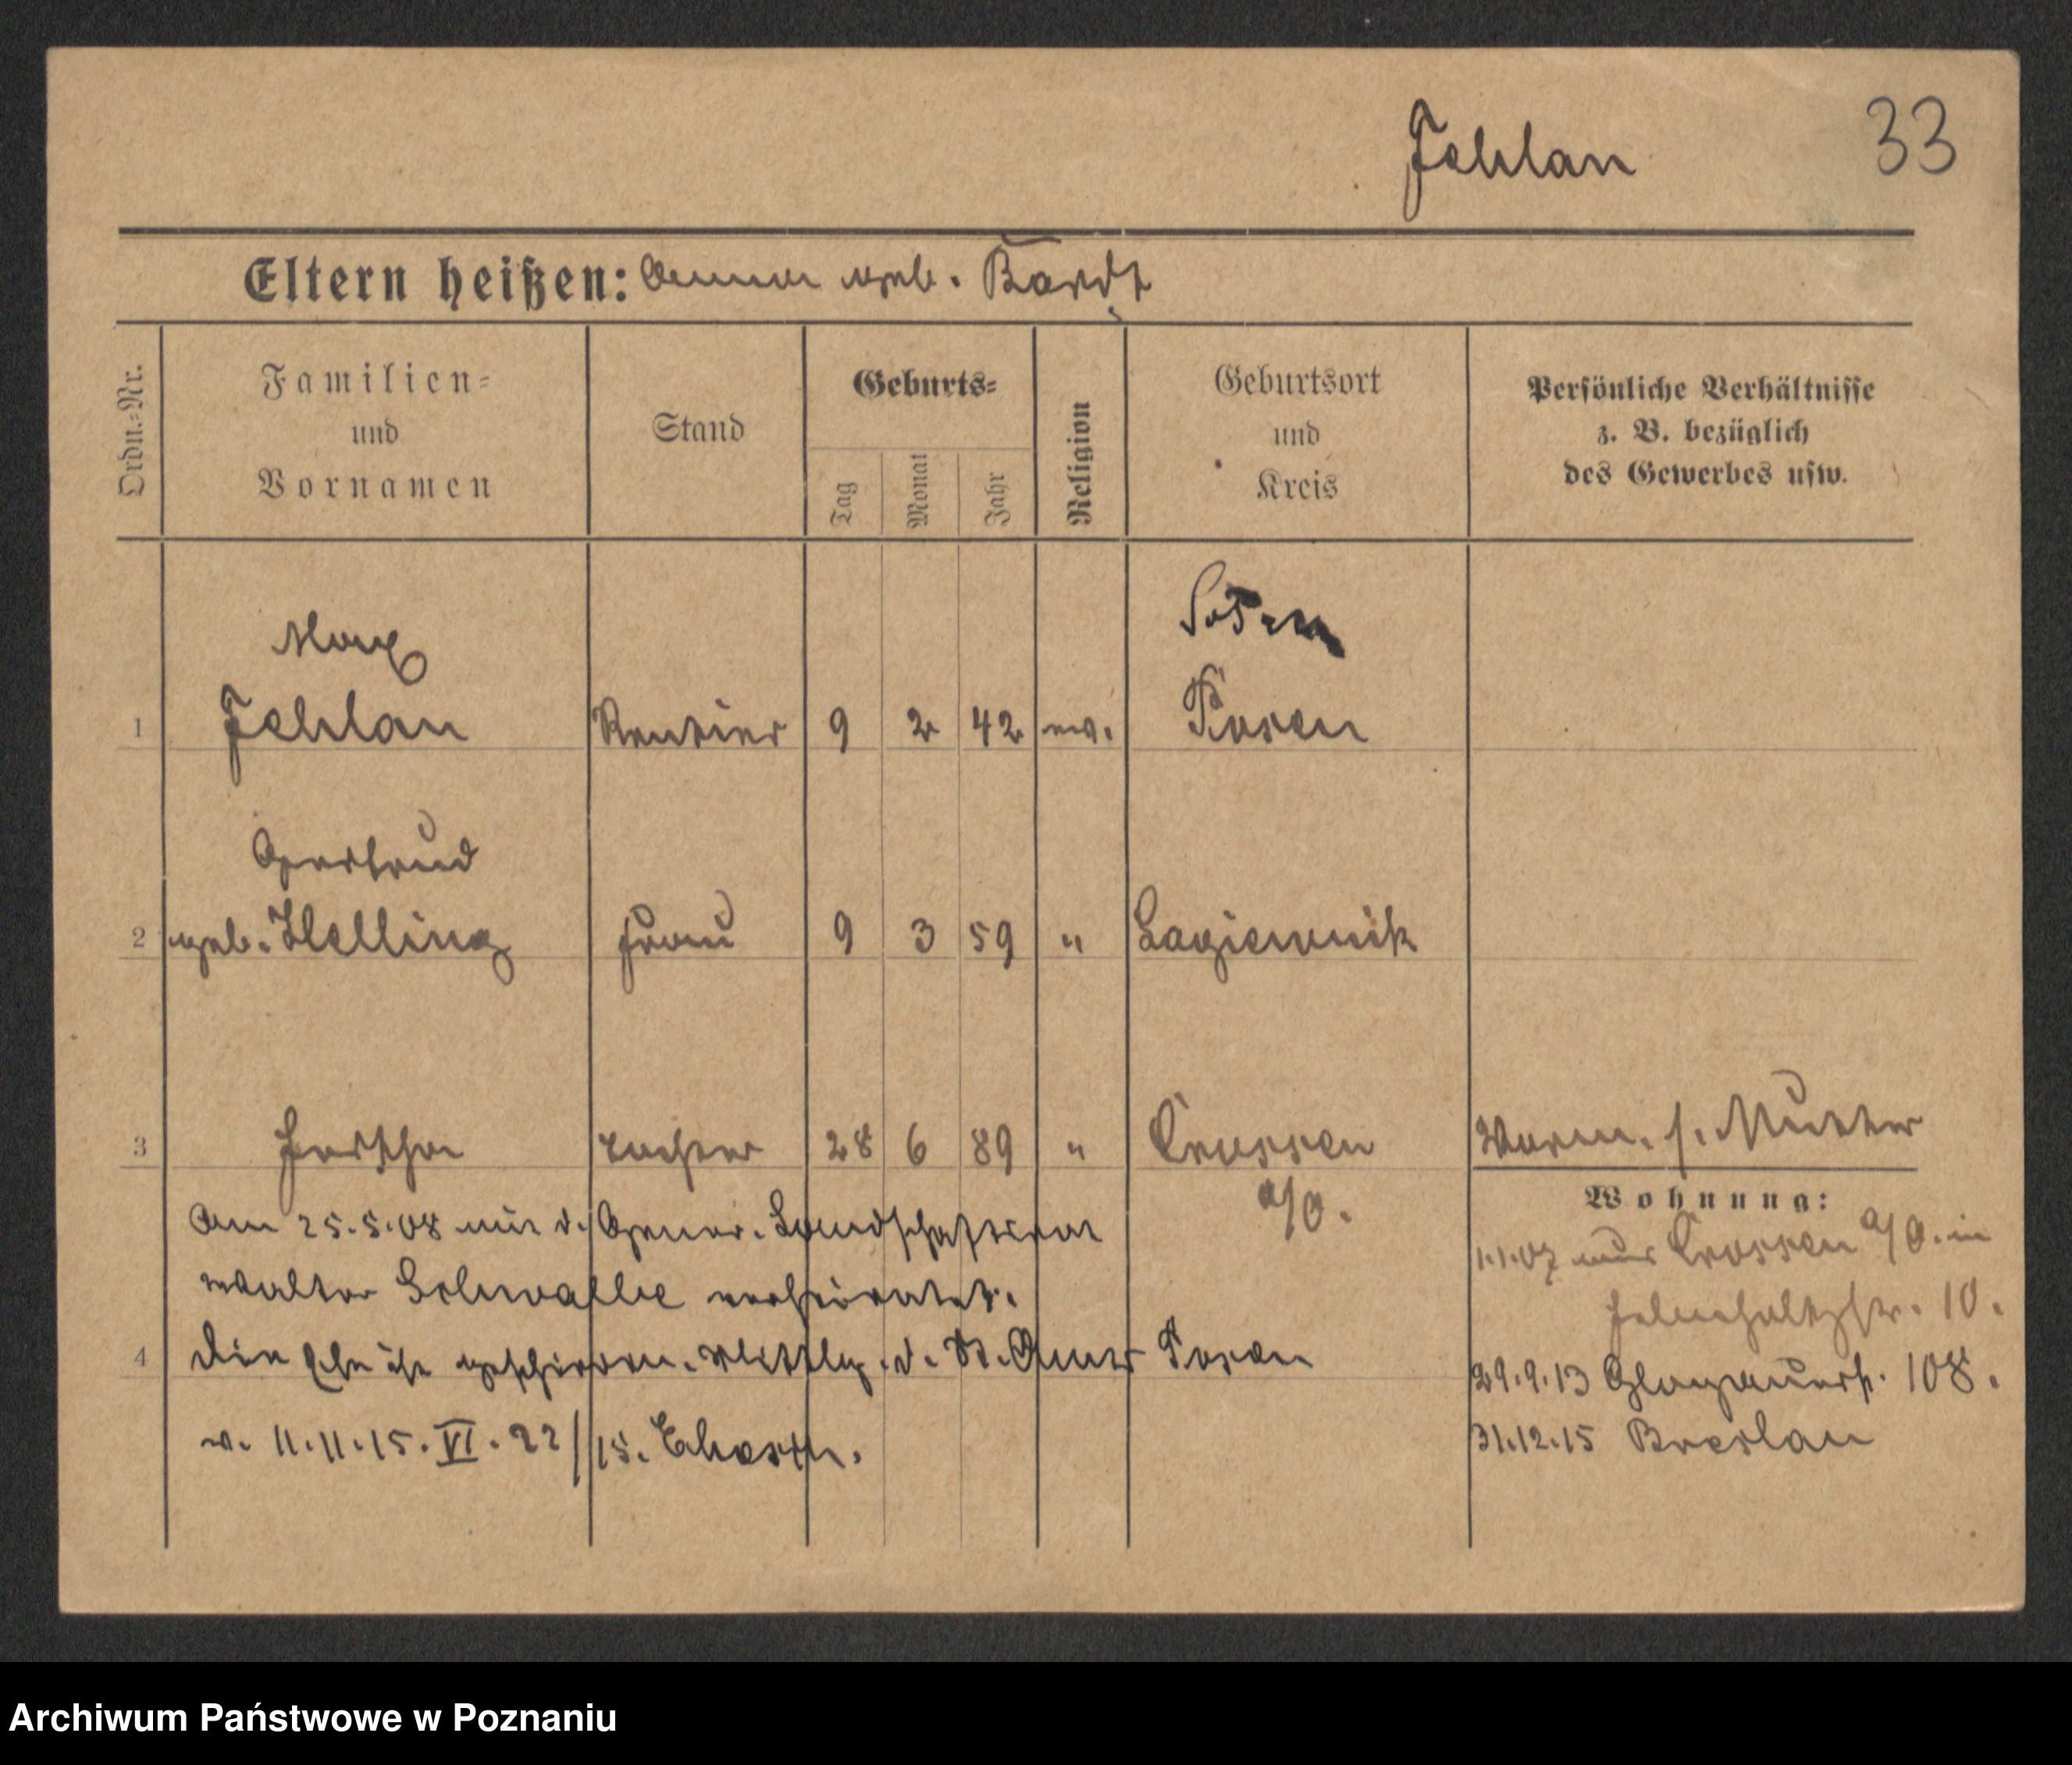 Fehlan
33
Eltern heißen: Anna geb. Bardt
Ordn.=Nr.
Familien=
und
Vornamen
Stand
Geburts=
Tag
Monat
Jahr
Religion
Geburtsort
und
Kreis
Persönliche Verhältnisse
z. B. bezüglich
des Gewerbes usw.
Max
Posen
1 Fehlan Rentier 9 2 42 ev. Posen
Gertrud
2 geb. Helling Frau 9 3 59 " Lagiewnik
3 Hertha Tochter 28 6 89 " Crossen Mutter
a/O.
Am 25.5.08 mit d. Gener. Landschaftsrat
Walter Schwalbe verheiratet.
4 Die Ehe ist geschieden. Mittlg. d. St. Amts Posen
v. 11.11.15. VI. 22/15.
Wohnung:
1.1.07 aus Crossen a/O. in
Helmholtzstr. 10.
29.9.13 Glogauerstr. 108.
31.12.15 Breslau
Archiwum Państwowe w Poznaniu